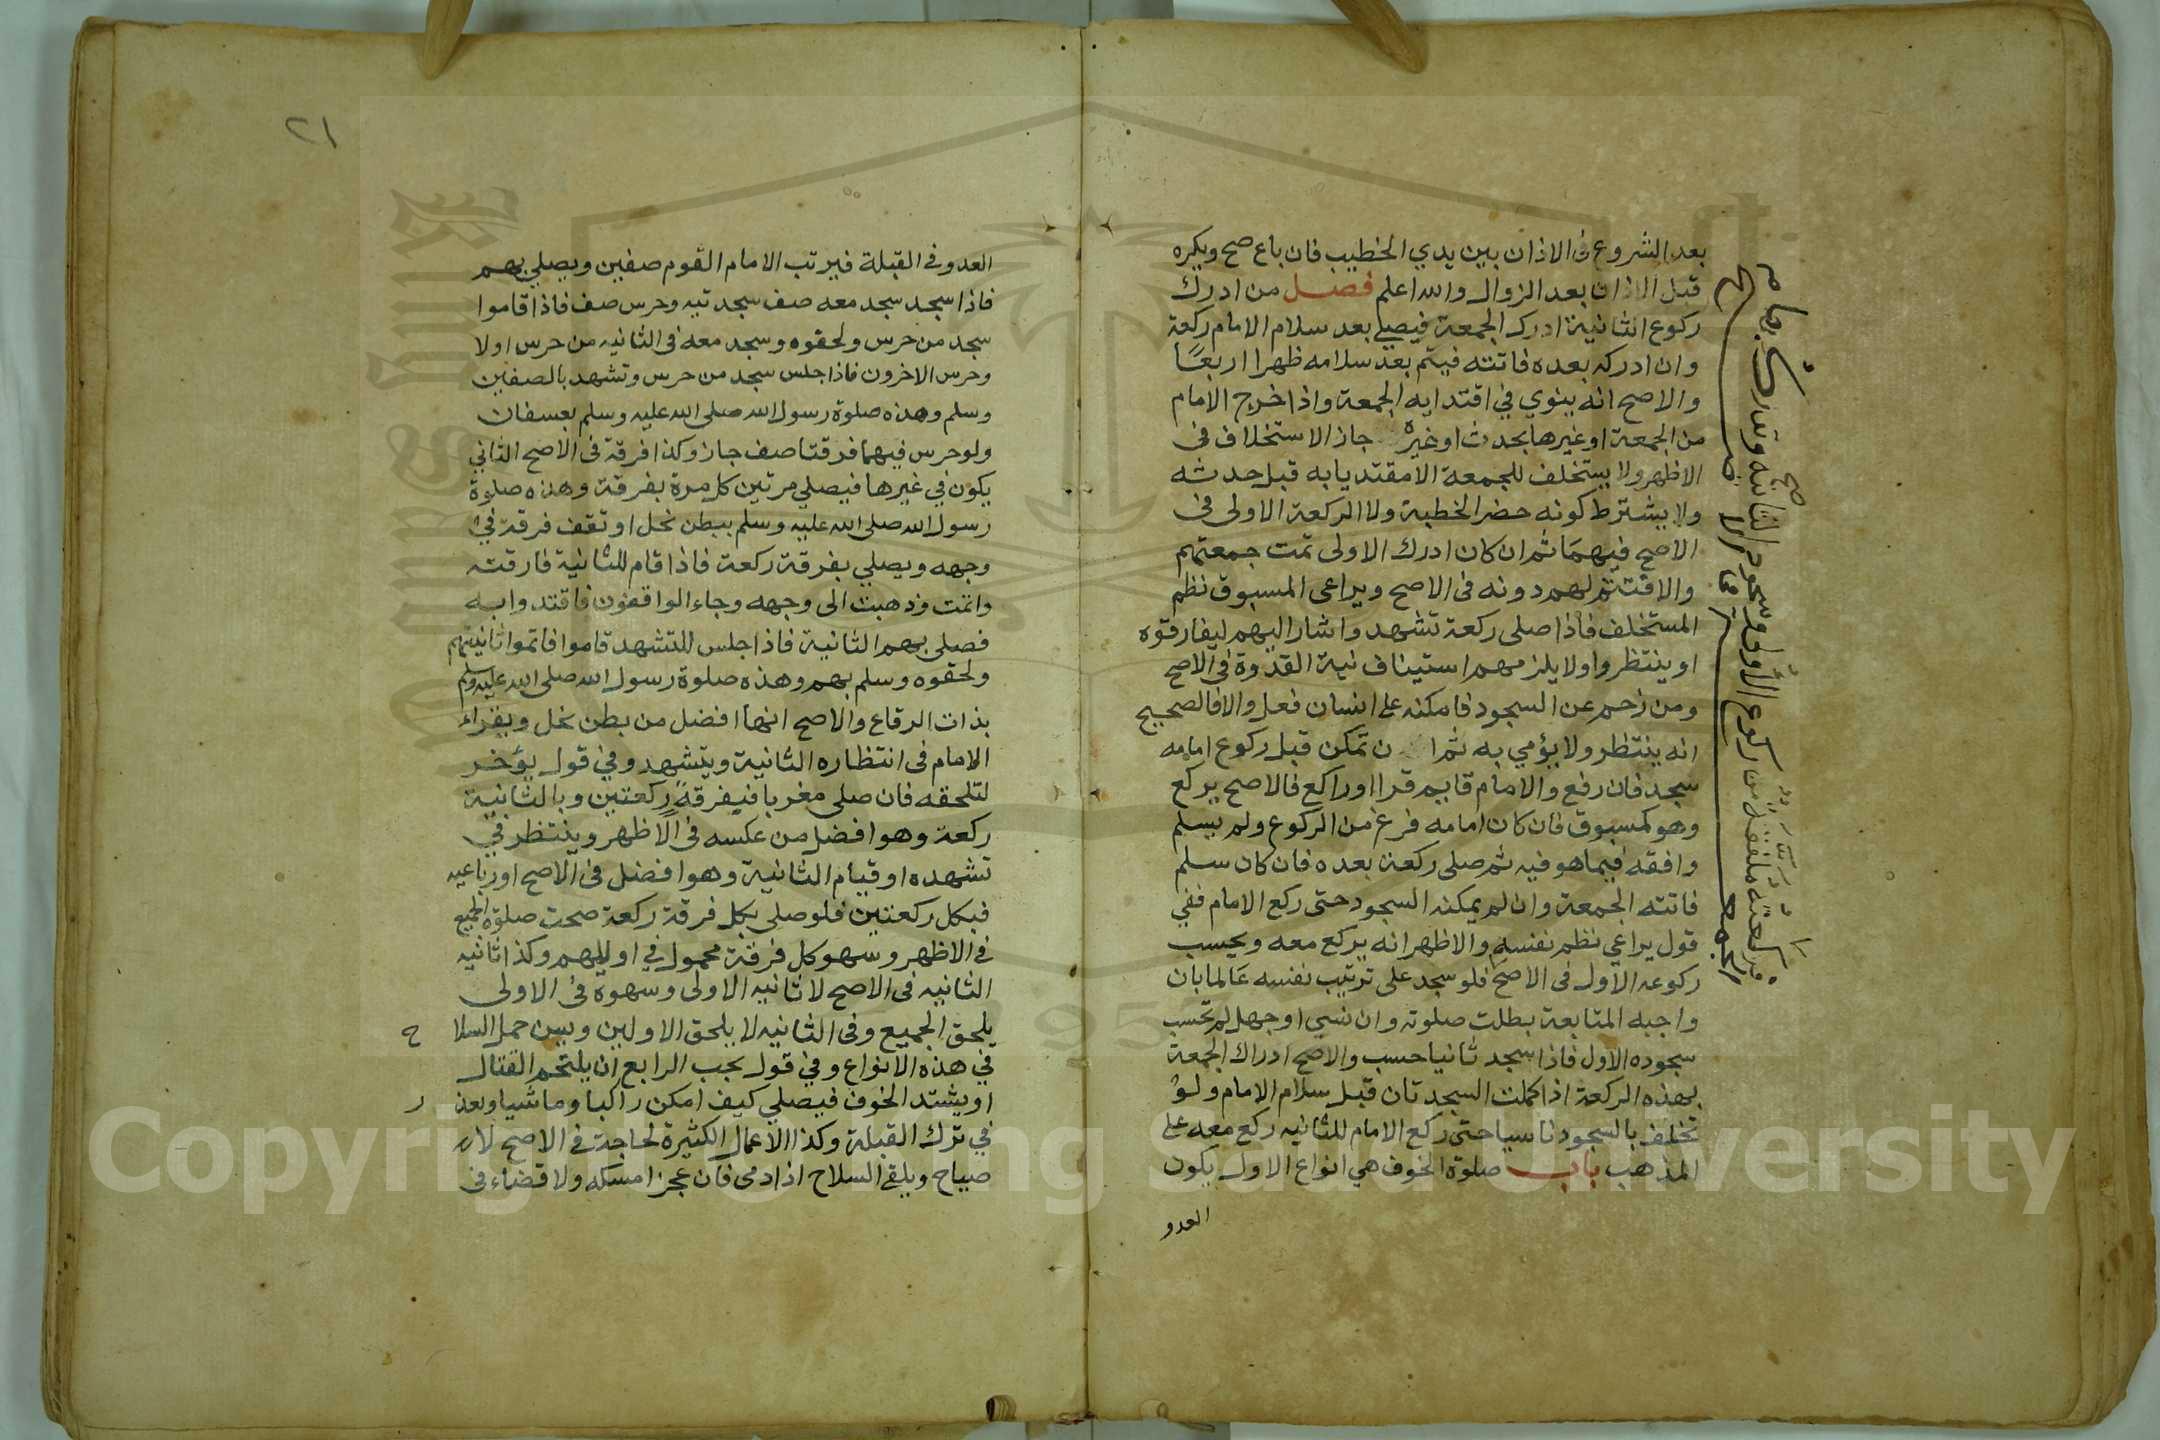 بعد الشروع في الاذان بين يدي الخطيب فان باع صح ويكره
قبل الاذان بعد الزوال والله اعلم فصل من ادرك
ركوع الثانية ادرك الجمعة فيصلي بعد سلام الامام ركعة
وان ادركه بعده فاتته فيتم بعد سلامه ظهرا اربعًا
والاصح انه ينوي في اقتدايه الجمعة واذا خرج الامام
من الجمعة او غيرها بحدث او غيره جاز الاستخلاف في
الاظهر ولا يستخلف للجمعة الا مقتديا به قبل حدثه
ولا يشترط كونه حضر الخطبة ولا الركعة الاولى في
الاصح فيهما ثم ان كان ادرك الاولى تمت جمعتهم
والا فتتم لهم دونه في الاصح ويراعي المسبوق نظم
المستخلف فاذا صلى ركعة تشهد واشار اليهم ليفارقوه
او ينتظروا ولا يلزمهم استيناف نية القدوة في الاصح
ومن زحم عن السجود فامكنه على انسان فعل والا فالصحيح
انه ينتظر ولا يومي به ثم ان تمكن قبل ركوع امامه
سجد فان رفع والامام قايم قرا او راكع فالاصح يركع
وهو كمسبوق فان كان امامه فرغ من الركوع ولم يسلم
وافقه فيما هو فيه ثم صلى ركعة بعده فان كان سلم
فاتته الجمعة وان لم يمكنه السجود حتى ركع الامام ففي
قول يراعي نظم نفسه والاظهر انه يركع معه ويحسب
ركوعه الاول في الاصح فلو سجد على ترتيب نفسه عالما بان
واجبه المتابعة بطلت صلوته وان نسي او جهل لم تحسب
سجوده الاول فاذا سجد ثانيا حسب والاصح ادراك الجمعة
بهذه الركعة اذا كملت السجدتان قبل سلام الامام ولو
تخلف بالسجود ناسيا حتى ركع الامام للثانيه ركع معه على
المذهب باب صلوة الخوف هي انواع الاول يكون
العدو
فركعته ملفقة من ركوع الاولى وسجود الثانيه وتدرك بها
الجمعة
٢١
العدو في القبلة فيرتب الامام القوم صفين ويصلي بهم
فاذا سجد سجد معه صف سجدتيه وحرس صف فاذا قاموا
سجد من حرس ولحقوه وسجد معه في الثانيه من حرس اولا
وحرس الاخرون فاذا جلس سجد من حرس وتشهد بالصفين
وسلم وهذه صلوة رسول الله صلى الله عليه وسلم بعسفان
ولو حرس فيهما فرقتا صف جاز وكذا فرقة في الاصح الثاني
يكون في غيرها فيصلي مرتين كل مرة بفرقة وهذه صلوة
رسول الله صلى الله عليه وسلم ببطن نخل او تقف فرقة في
وجهه ويصلي بفرقة ركعة فاذا قام للثانية فارقته
واتمت وذهبت الى وجهه وجاء الواقفون فاقتدوا به
فصلى بهم الثانية فاذا جلس للتشهد قاموا فاتموا ثانيتهم
ولحقوه وسلم بهم وهذه صلوة رسول الله صلى الله عليه وسلم
بذات الرقاع والاصح انها افضل من بطن نخل ويقراء
الامام في انتظاره الثانية ويتشهد وفي قول يؤخر
لتلحقه فان صلى مغربا فبفرقة ركعتين وبالثانية
ركعة وهو افضل من عكسه في الاظهر وينتظر في
تشهده او قيام الثانية وهو افضل في الاصح او رباعيه
فبكل ركعتين فلو صلى بكل فرقة ركعة صحت صلوة الجميع
في الاظهر وسهو كل فرقة محمول في اوليهم وكذا ثانيه
الثانيه في الاصح لا ثانيه الاولى وسهوه في الاولى
يلحق الجميع وفي الثانيه لا يلحق الاولين ويسن حمل السلا ح
في هذه الانواع وفي قول يجب الرابع ان يلتحم القتال
او يشتد الخوف فيصلي كيف امكن راكبا وماشيا ويعذ ر
في ترك القبلة وكذا الاعمال الكثيرة لحاجة في الاصح لا
صياح ويلقي السلاح اذا دمى فان عجز امسكه ولا قضاء في
Copyright © King Saud University